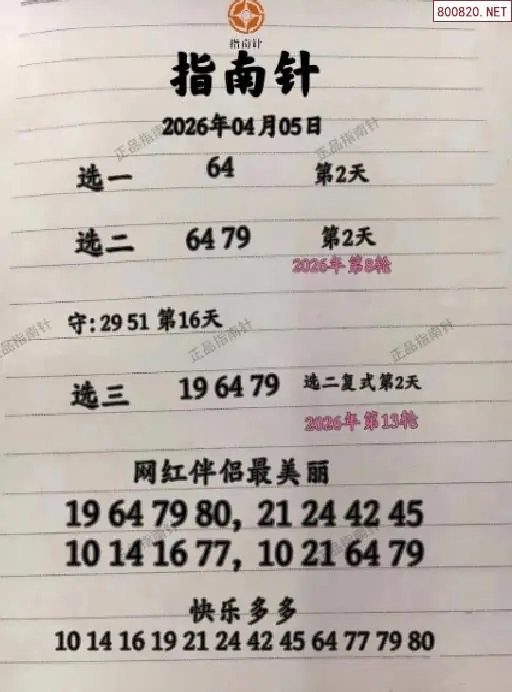 800820.NET
指南针
指南针
2026年04月05日
正品指南针 正品指南针
选一 64 第2天
选二 64 79 第2天
2026年第8轮
守:29 51 第16天
正品指南针 正品指南针 正品指南针
选三 19 64 79 选二复式第2天
2026年第13轮
网红伴侣最美丽
19 64 79 80, 21 24 42 45
10 14 16 77, 10 21 64 79
正品指南针 正品指南针
快乐多多
10 14 16 19 21 24 42 45 64 77 79 80